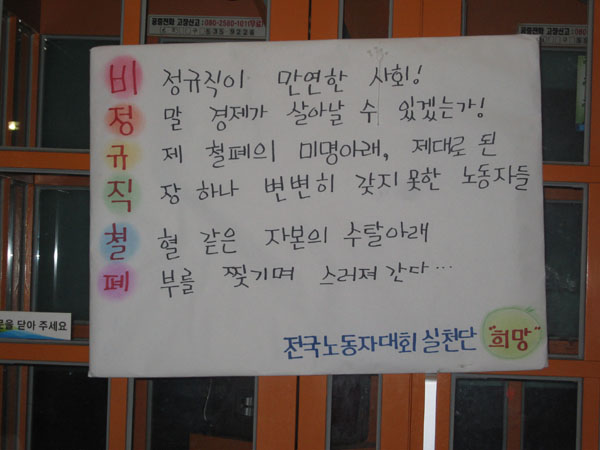 공중전화 고장신고:080-2580-101(무료)
비정규직이 만연한 사회!
정말 경제가 살아날 수 있겠는가!
규제 철폐의 미명아래, 제대로 된
직장 하나 변변히 갖지 못한 노동자들
철혈 같은 자본의 수탈아래
폐부를 찢기며 스러져 간다...
문을 닫아 주세요
전국노동자대회 실천단 "희망"